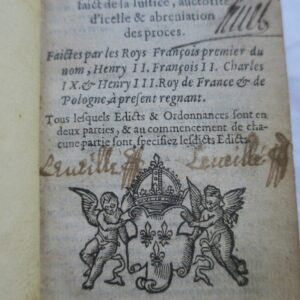 faict de la Iustice, auctorité
d'icelle & abreuiation
des proces.
Faictes par les Roys François premier du
nom, Henry II. François II. Charles
IX. & Henry III. Roy de France & de
Pologne, à present regnant.
Tous lesquels Edicts & Ordonnances sont en
deux parties, & au commencement de cha-
cune partie sont, specifiez lesdicts Edicts.